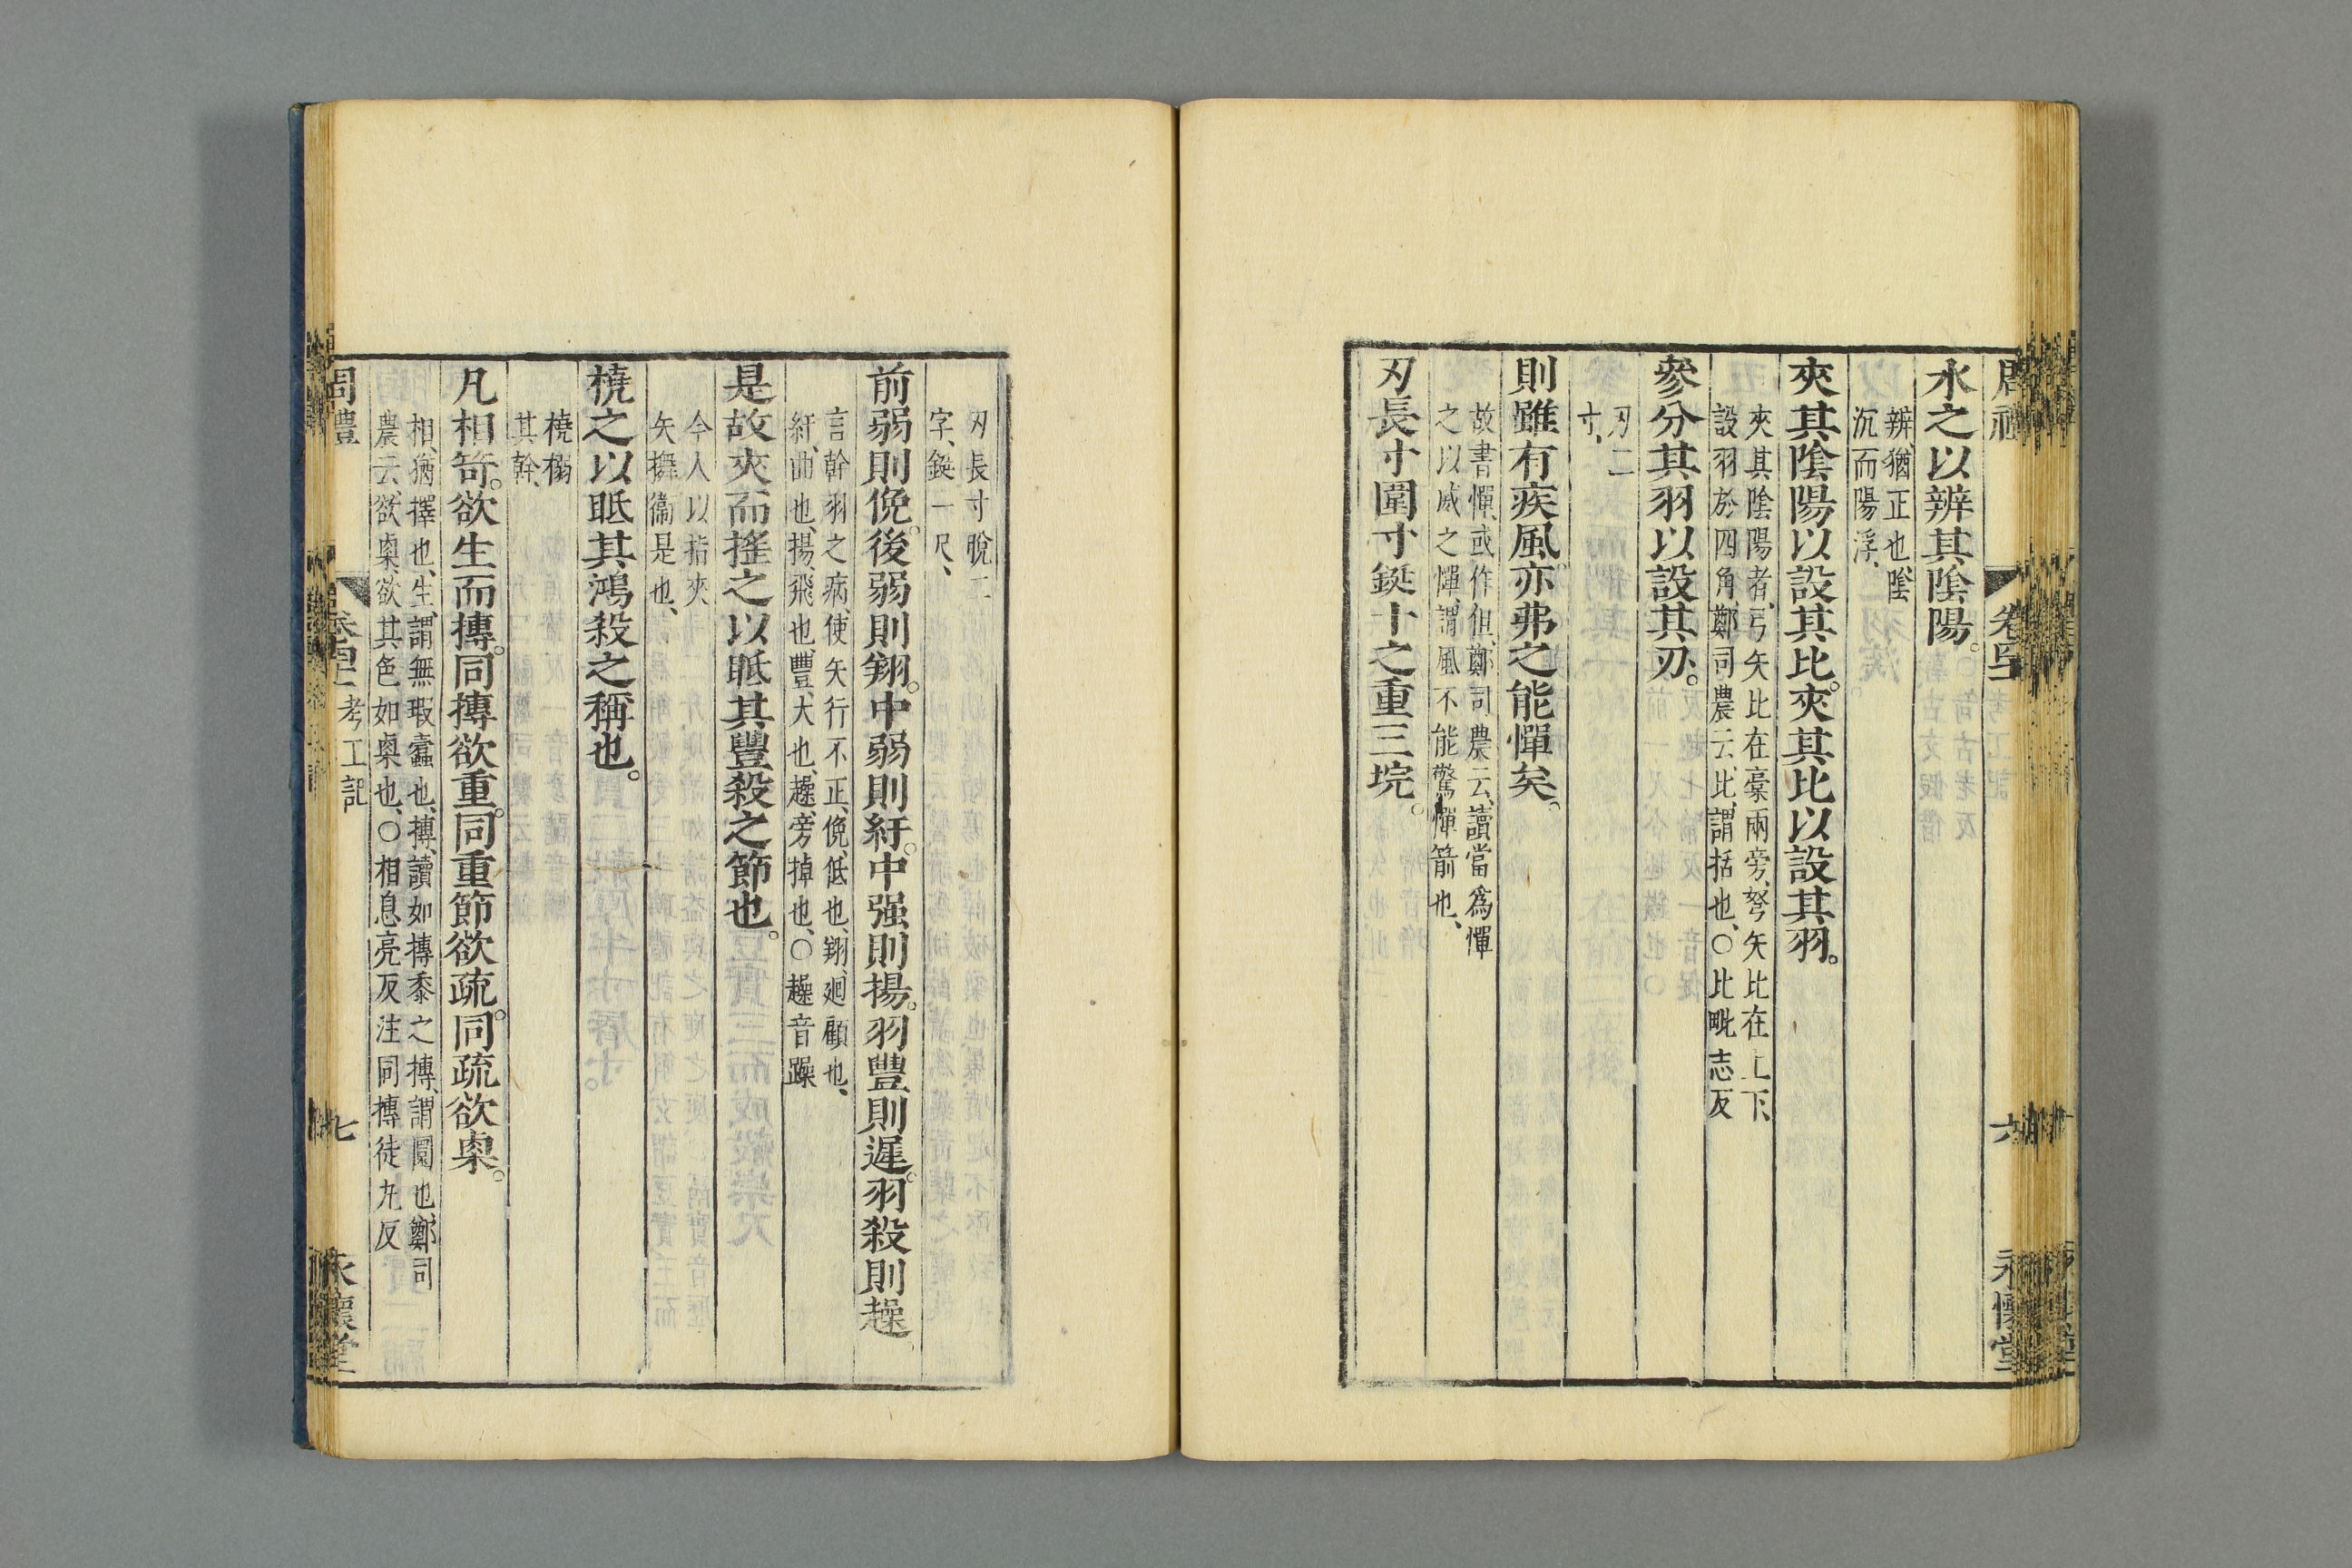 水之以辨其陰陽。
辨、猶正也、陰
沉而陽浮、
夾其陰陽以設其比。夾其比以設其羽。
夾其陰陽者、弓矢比在槀兩旁、弩矢比在上下、
設羽於四角、鄭司農云、比、謂括也、○比毗志反
參分其羽以設其刃。
刃二
寸、
則雖有疾風。亦弗之能憚矣。
故書憚、或作但、鄭司農云、讀當爲憚
之以威之憚、謂風不能驚憚箭也、
刃長寸圍寸鋌十之重三垸。
六
永懷堂
刃長寸脫二
字、鋌一尺、
前弱則俛。後弱則翔。中弱則紆。中强則揚。羽豐則遲。羽殺則趮。
言幹羽之病、使矢行不正、俛、低也、翔、廻顧也、
紆、曲也、揚、飛也、豐、大也、趮、旁掉也、○趮音躁
是故夾而搖之以眂其豐殺之節也。
今人以指夾
矢儛衞是也、
橈之以眂其鴻殺之稱也。
橈搦
其幹、
凡相笴。欲生而摶。同摶欲重。同重節欲疏。同疏欲㮚。
相、猶擇也、生、謂無瑕蠹也、摶、讀如摶黍之摶、謂圜也、鄭司
農云、欲㮚、欲其色如㮚也、○相息亮反注同摶徒九反
周禮
考工記
七
永懷堂